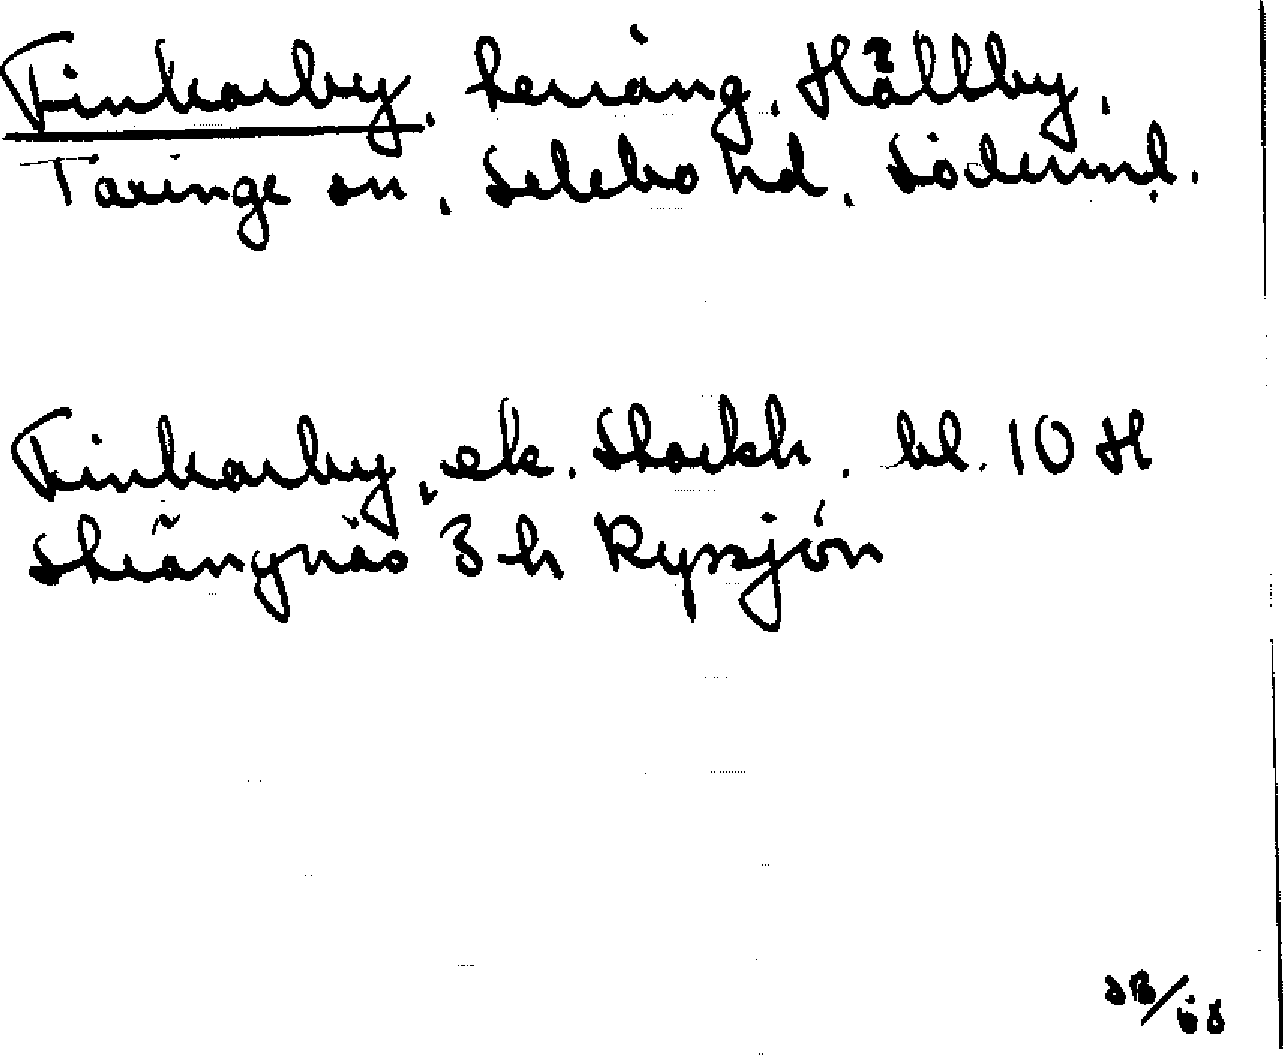 Finkarby, herräng, Hållby,
Taxinge sn, Selebo hd, Söderml.
Finkarby, ek. Stockh. bl. 10 H
Strängnäs 3 h Ryssjön